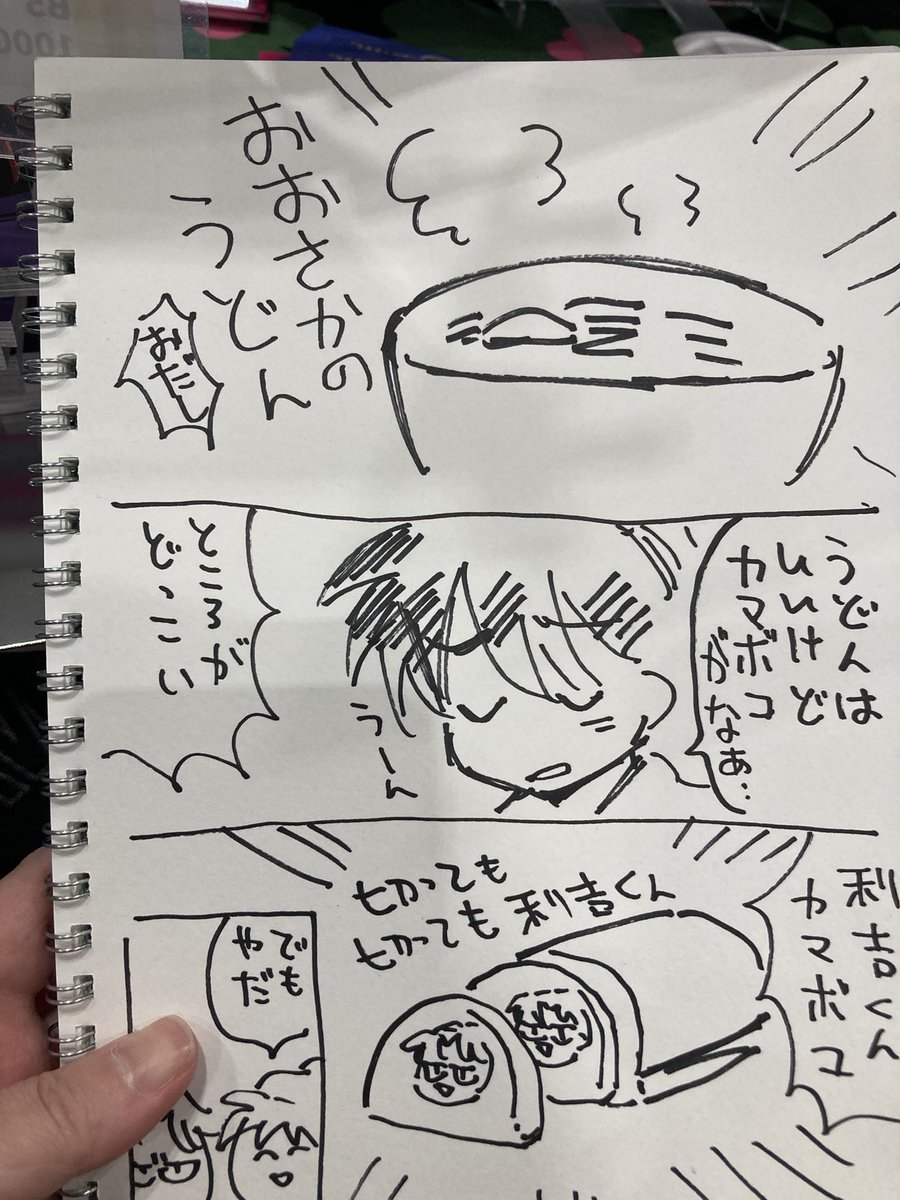 B5
1000
おおさかの
うどん
おだし
うどんは
いいけど
カマボコ
がなぁ…
うーん
ところが
どっこい
利吉くん
カマボコ
切っても
切っても利吉くん
でも
やだ